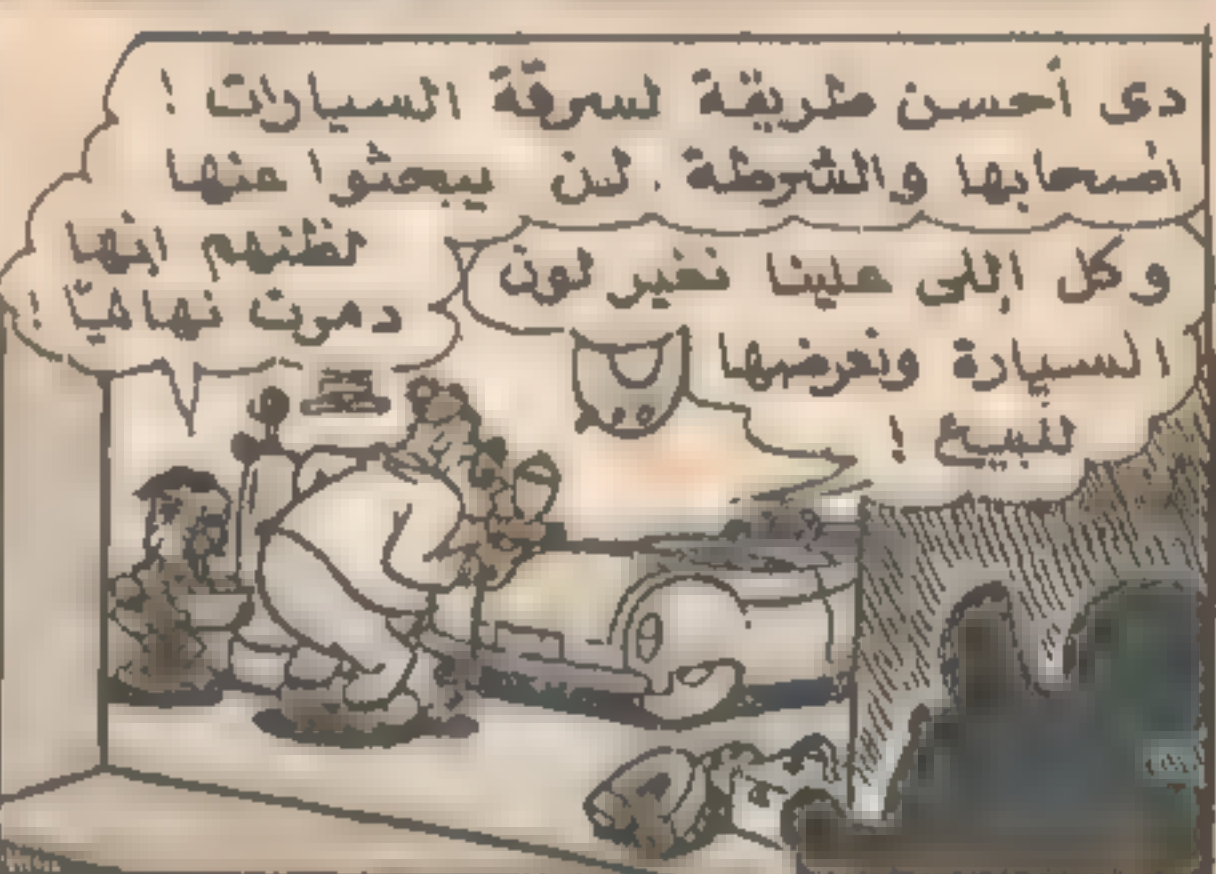 دى أحسن طريقة لسرقة السيارات !
اصحابها والشرطة لن يبحثوا عنها
لظنهم انها
دمرت نهائيّا !
وكل اللى علينا نغير لون
السيارة ونعرضها
للبيع !